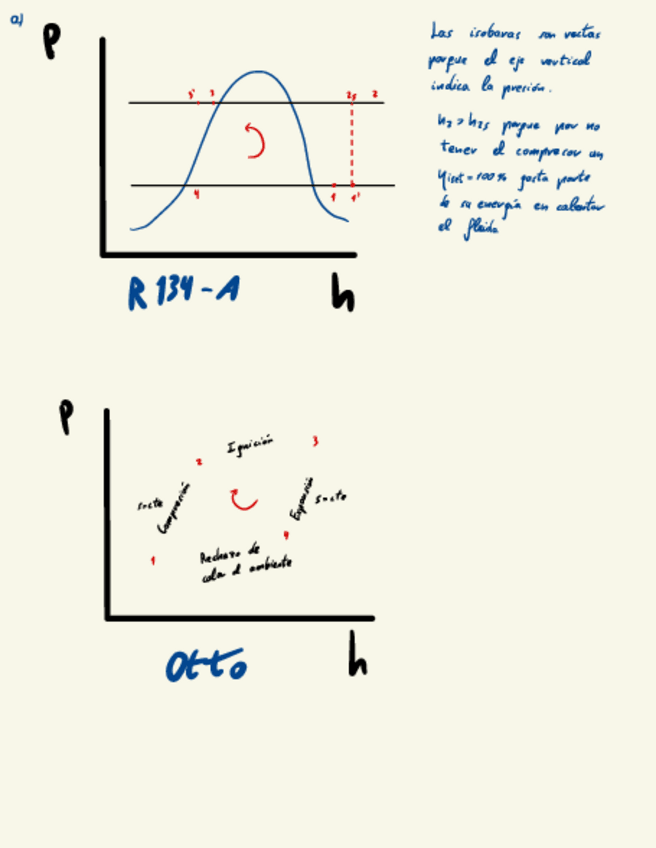 a)
P
Las isobaras son rectas
porque el eje vertical
indica la presión.
h2 > h2s porque por no
tener el compresor un
ηiset = 100% gasta parte
de su energía en calentar
el fluido
3' 3 2s 2
4 1 1'
R134-A h
P
Ignición 3
2
s=cte Compresión
Expansión s=cte
4
1
Rechazo de
calor al ambiente
Otto h